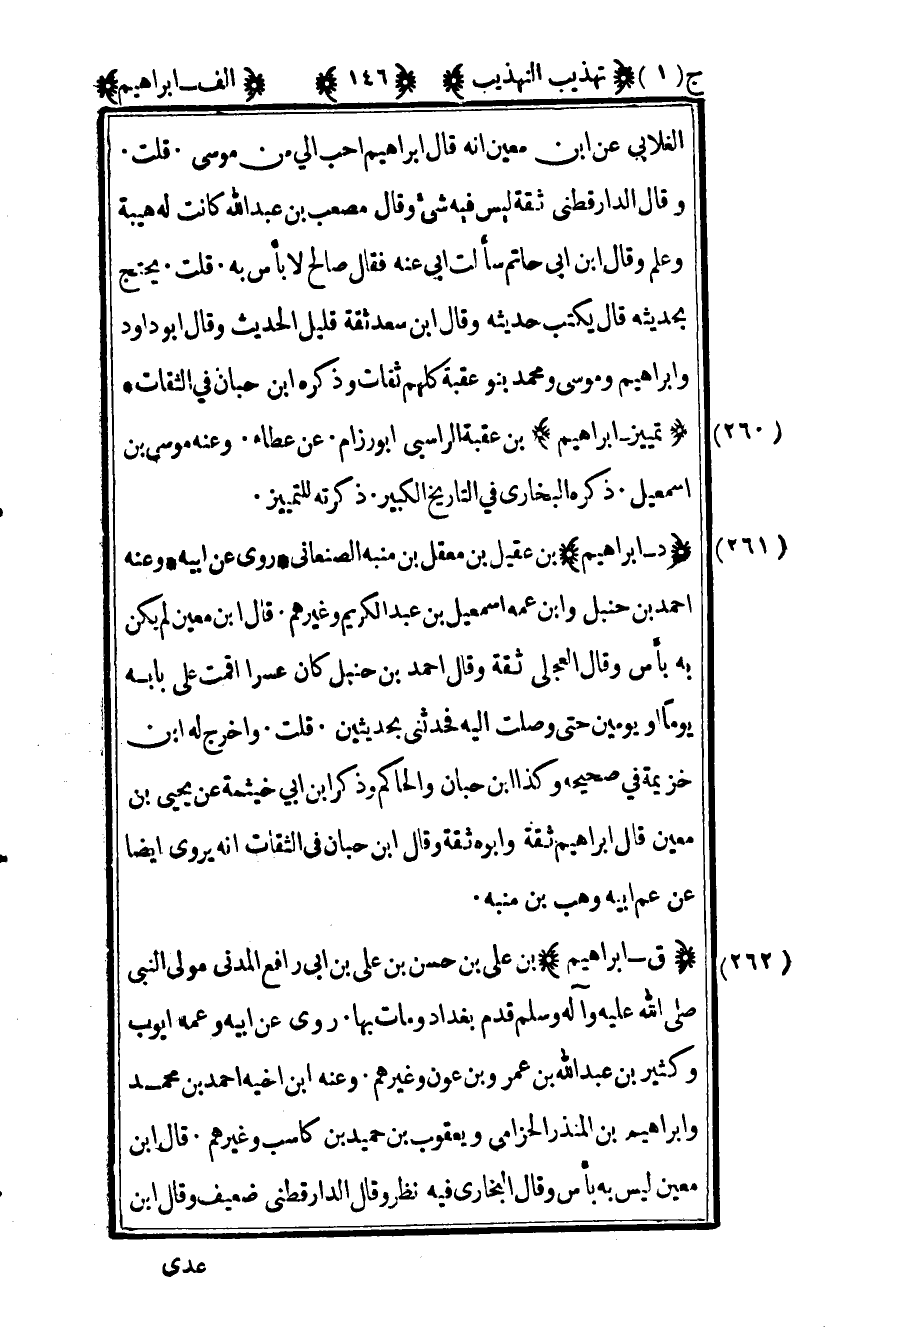 ج (١) ﴿ تهذيب التهذيب ﴾ ﴿ ١٤٦ ﴾ ﴿ الف ـ ابراهيم ﴾
الغلابي عن ابن معين انه قال ابراهيم احب الي من موسى · قلت ·
وقال الدارقطنى ثقة ليس فيه شئ وقال مصعب بن عبدالله كانت له هيبة
وعلم وقال ابن ابى حاتم سألت ابي عنه فقال صالح لا بأس به · قلت · يحتج
بحديثه قال يكتب حديثه وقال ابن سعد ثقة قليل الحديث وقال ابو داود
وابراهيم وموسى ومحمد بنو عقبة كلهم ثقات وذكره ابن حبان في الثقات *
(٢٦٠) ﴿ تمييز ـ ابراهيم ﴾ بن عقبة الراسبى ابو رزام · عن عطاء · وعنه موسى بن
اسمعيل · ذكره البخارى في التاريخ الكبير · ذكرته للتمييز ·
(٢٦١) ﴿ د ـ ابراهيم ﴾ بن عقيل بن معقل بن منبه الصنعانى * روى عن ابيه * وعنه
احمد بن حنبل وابن عمه اسمعيل بن عبدالكريم وغيرهم · قال ابن معين لم يكن
به بأس وقال العجلى ثقة وقال احمد بن حنبل كان عسرا اقمت على بابه
يوماً او يومين حتى وصلت اليه فحدثنى بحديثين · قلت · واخرج له ابن
خزيمة في صحيحه وكذا ابن حبان والحاكم وذكر ابن ابي خيثمة عن يحيى بن
معين قال ابراهيم ثقة وابوه ثقة وقال ابن حبان فى الثقات انه يروى ايضا
عن عم ابيه وهب بن منبه ·
(٢٦٢) ﴿ ق ـ ابراهيم ﴾ بن على بن حسن بن على بن ابى رافع المدنى مولى النبى
صلى الله عليه وآله وسلم قدم بغداد ومات بها · روى عن ابيه وعمه ايوب
وكثير بن عبدالله بن عمر وبن عون وغيرهم · وعنه ابن اخيه احمد بن محمد
وابراهيم بن المنذر الحزامى ويعقوب بن حميد بن كاسب وغيرهم · قال ابن
معين ليس به بأس وقال البخارى فيه نظر وقال الدارقطنى ضعيف وقال ابن
عدى